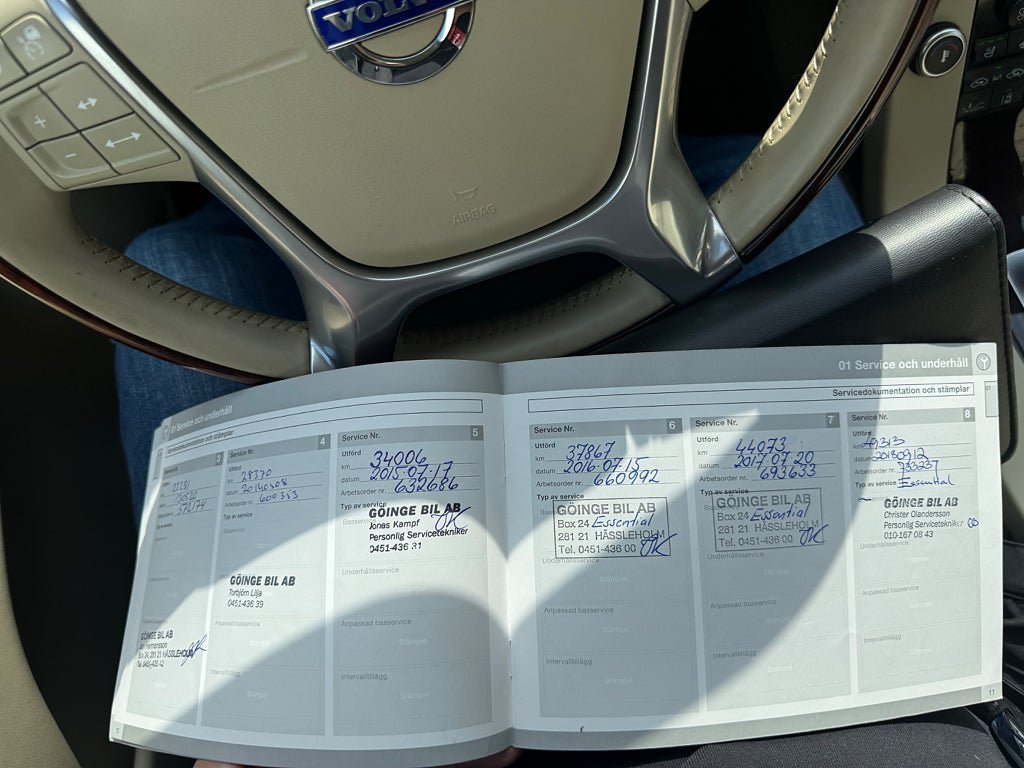 VOLVO
AIRBAG
01 Service och underhåll
Servicedokumentation och stämplar
Service Nr. 3
GÖINGE BIL AB
Box 24, 281 21 HÄSSLEHOLM
Tel. 0451-436 42
Service Nr. 4
Utförd
km 28370
datum 20140508
Arbetsorder nr. 600353
Typ av service
GÖINGE BIL AB
Torbjörn Lilja
0451-436 39
Anpassad basservice
Intervalltillägg
Stämpel
Service Nr. 5
Utförd
km 34006
datum 2015-07-17
Arbetsorder nr. 632686
Typ av service
GÖINGE BIL AB
Jonas Kampf
Personlig Servicetekniker
0451-436 31
Underhållsservice
Anpassad basservice
Stämpel
Intervalltillägg
Stämpel
01 Service och underhåll
Servicedokumentation och stämplar
01
Service Nr. 6
Utförd
km 37867
datum 2016-07-15
Arbetsorder nr. 660992
Typ av service
GÖINGE BIL AB
Box 24 Essential
281 21 HÄSSLEHOLM
Tel. 0451-436 00
Underhållsservice
Stämpel
Anpassad basservice
Stämpel
Intervalltillägg
Stämpel
Service Nr. 7
Utförd
km 44073
datum 2017-07-20
Arbetsorder nr. 693633
Typ av service
GÖINGE BIL AB
Box 24 Essential
281 21 HÄSSLEHOLM
Tel. 0451-436 00
Underhållsservice
Stämpel
Anpassad basservice
Stämpel
Intervalltillägg
Stämpel
Service Nr. 8
Utförd
km 49313
datum 20180912
Arbetsorder nr. 733237
Typ av service Essential
GÖINGE BIL AB
Christer Olandersson
Personlig Servicetekniker
010-167 08 43
Underhållsservice
Stämpel
Anpassad basservice
Stämpel
Intervalltillägg
Stämpel
11